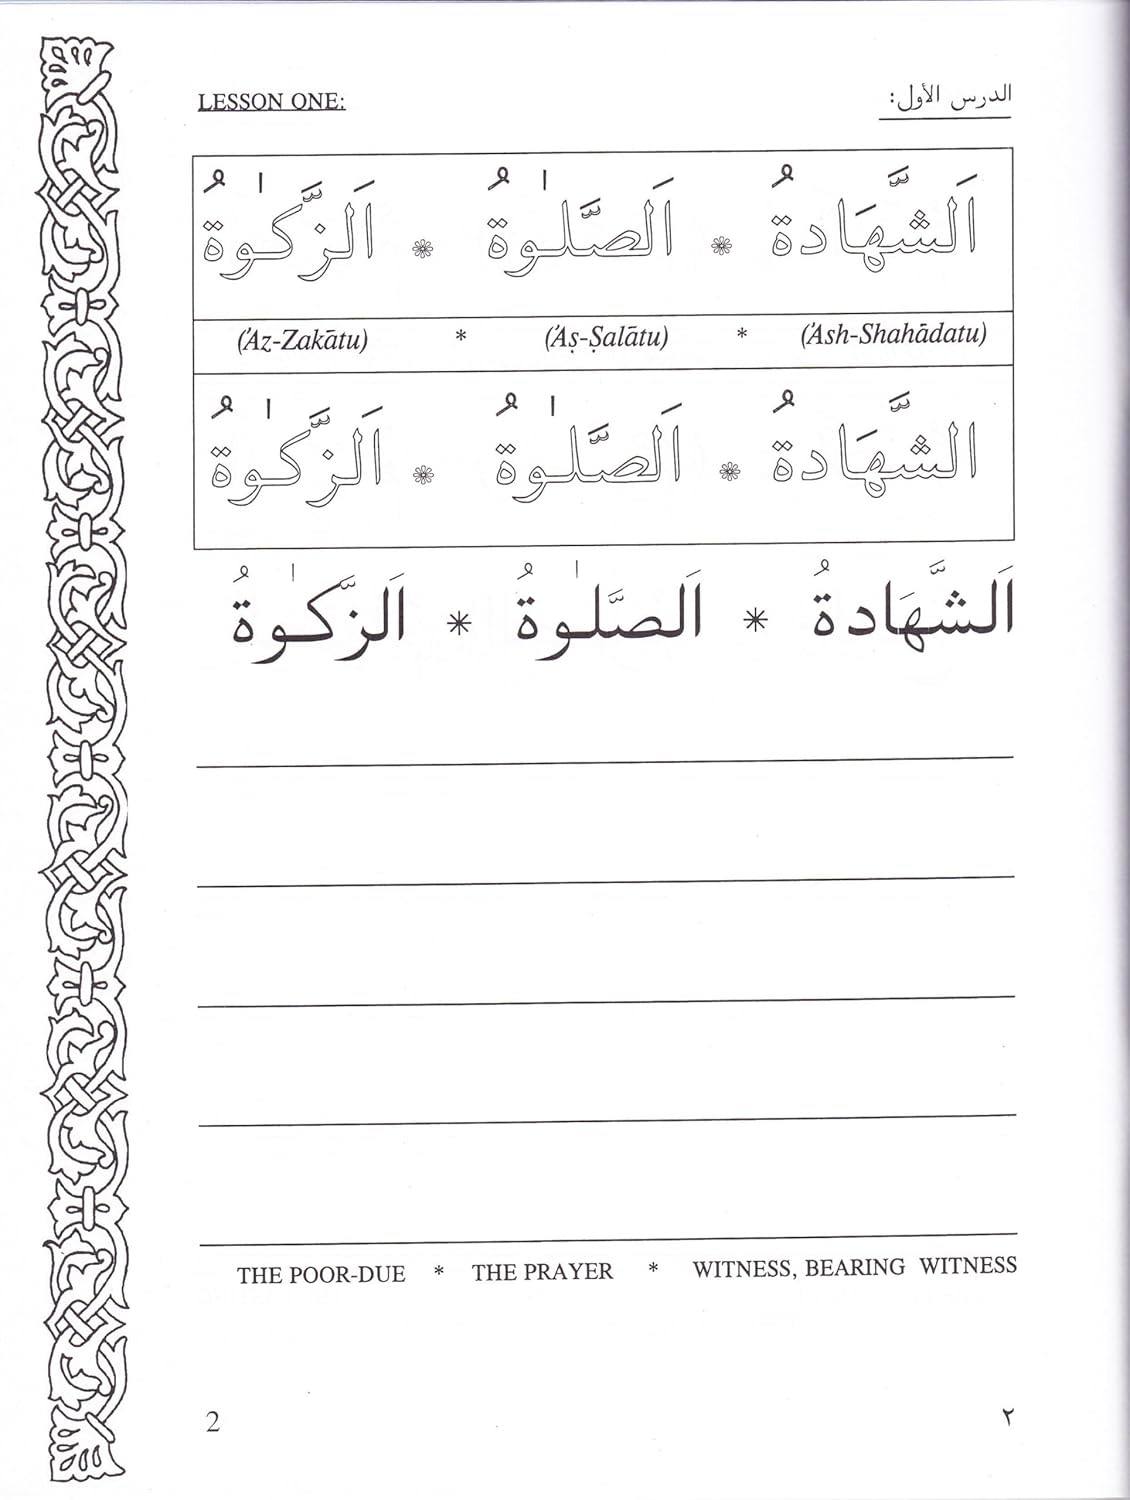 LESSON ONE: الدرس الأول:
اَلشَّهَادةُ * اَلصَّلٰوةُ * اَلزَّكٰوةُ
('Az-Zakātu) * ('Aṣ-Ṣalātu) * ('Ash-Shahādatu)
اَلشَّهَادةُ * اَلصَّلٰوةُ * اَلزَّكٰوةُ
اَلشَّهَادةُ * اَلصَّلٰوةُ * اَلزَّكٰوةُ
THE POOR-DUE * THE PRAYER * WITNESS, BEARING WITNESS
2 ٢